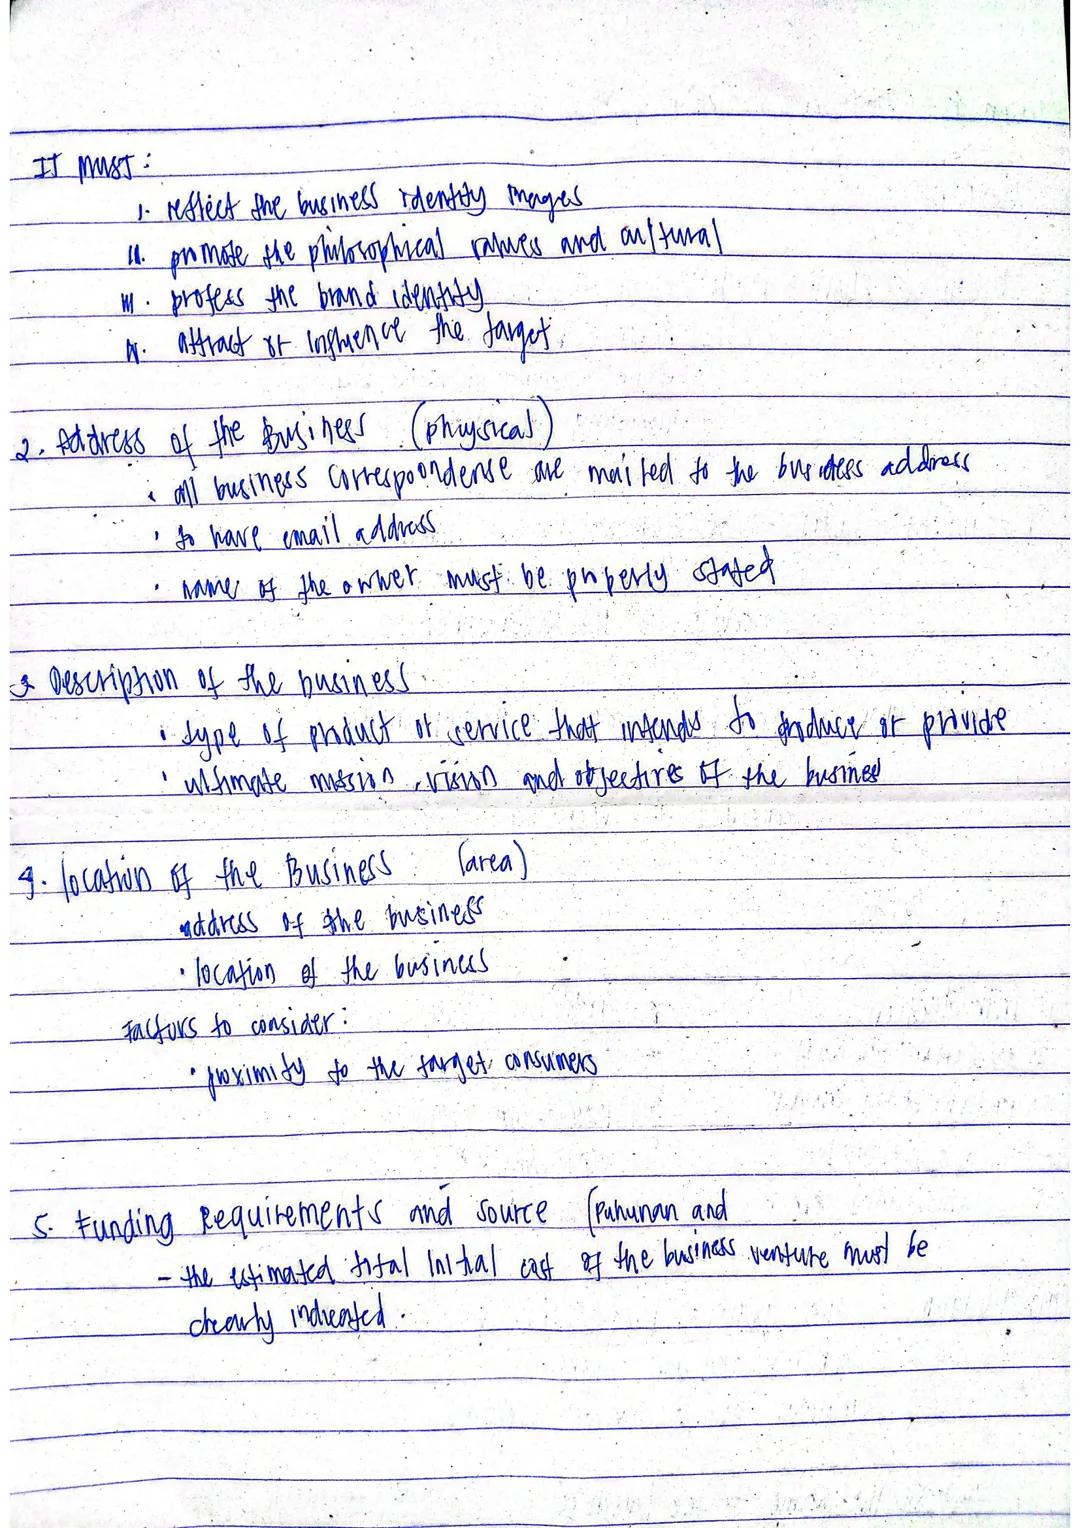 It must :
I. reflect the business identity images
II. promote the philosophical values and cultural
III. profess the brand identity
IV. attract or influence the target
2. Address of the Business (physical)
• all business correspoondense are mailed to the business address
• to have email address
• name of the owner must be properly stated
3 Description of the business
• type of product or service that intends to produce or privide
• ultimate mission, vision and objectives of the busines
4. location of the Business (area)
address of the business
• location of the business
Factors to consider :
• proximity to the target consumers
5. Funding Requirements and source (Puhunan and
- the estimated total Initial cost of the business venture must be
clearly indicated.